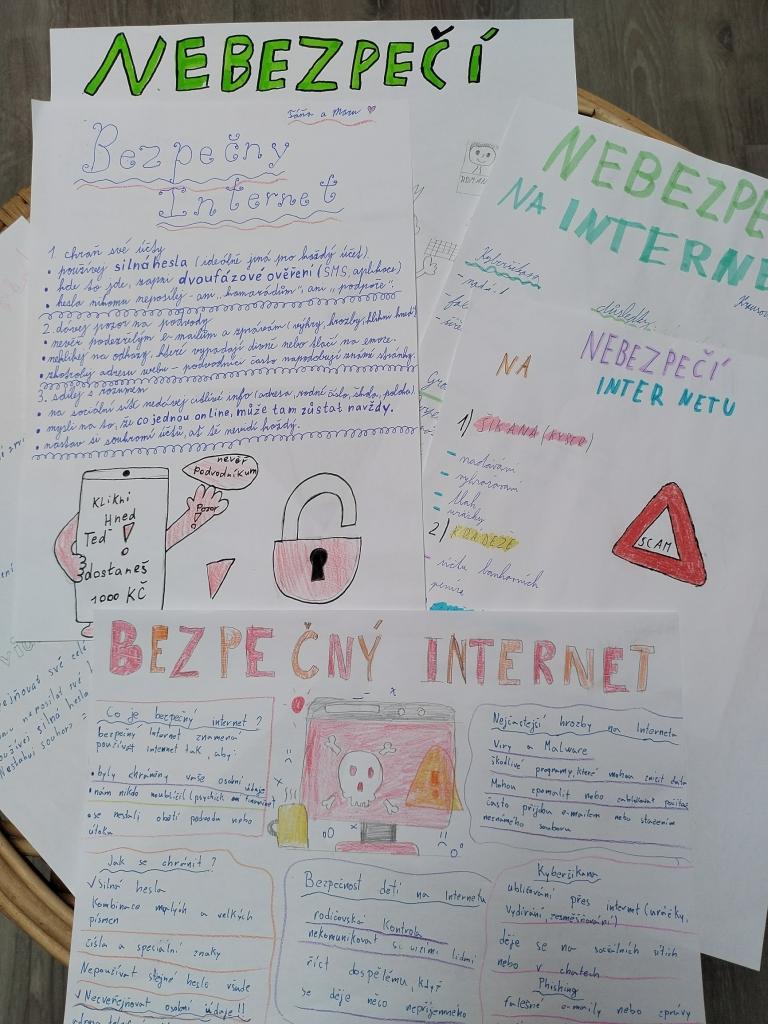 NEBEZPEČÍ
Táňa a
Bezpečny
Internet
1. chraň své účty
• používej silná hesla (ideálně jiná pro každý účet)
• kde to jde, zapni dvoufázové ověření (SMS, aplikace)
• hesla nikomu neposílej - ani „kamarádům", ani „podpoře".
2. dávej pozor na podvody
• nevěř podezřelým e-mailům a zprávám (výhry, hrozby, klikni hned)
• neklikej na odkazy, které vypadají divně nebo tlačí na emoce.
• zkontroluj adresu webu - podvodníci často napodobují známé stránky.
3. sdílej s rozumem
• na sociální sítě nedávej citlivé info (adresa, rodné číslo, škola, poloha)
• mysli na to, že co jednou online, může tam zůstat navždy.
• nastav si soukromí účtů, ať tě nevidí každý.
nevěř
Podvodníkum
Pozor
!
Klikni
Hned
Teď
!
dostaneš
1000 KČ
ROMAN
NEBEZPE
NA INTERNE
Kyberšikana
důsledky:
NEBEZPEČÍ
NA INTERNETU
1) ŠIKANA (KYBER)
- nadávání
- vyhrožování
- tlak
- urážky
2) KRÁDEŽE
- účtu bankovních
peníze
SCAM
BEZPEČNÝ INTERNET
Co je bezpečný internet?
bezpečný Internet znamená
používat internet tak, aby:
• byly chráněny vaše osobní údaje
• nám nikdo neublížil (psychick
• se nestali obětí podvodu nebo
útoku
!
Nejčastější hrozby na Internetu
Viry a Malware
škodlivé programy, které mohou zničit data
Mohou zpomalit nebo zablokovat počítač
často přijdou e-mailem nebo stažením
neznámého souboru
Jak se chránit?
✓Silná hesla
Kombinace malých a velkých
písmen
čísla a speciální znaky
Nepoužívat stejné heslo všude
✓Nezveřejňovat osobní údaje!!
Bezpečnost dětí na Internetu
rodičovská kontrola
nekomunikovat s cizími lidmi
říct dospělému, když
se děje něco nepříjemného
Kyberšikana
ubližování přes internet (urážky,
Vydírání, zesměšňování)
děje se na sociálních sítích
nebo v chatech
Phishing
falešné e-maily nebo zprávy